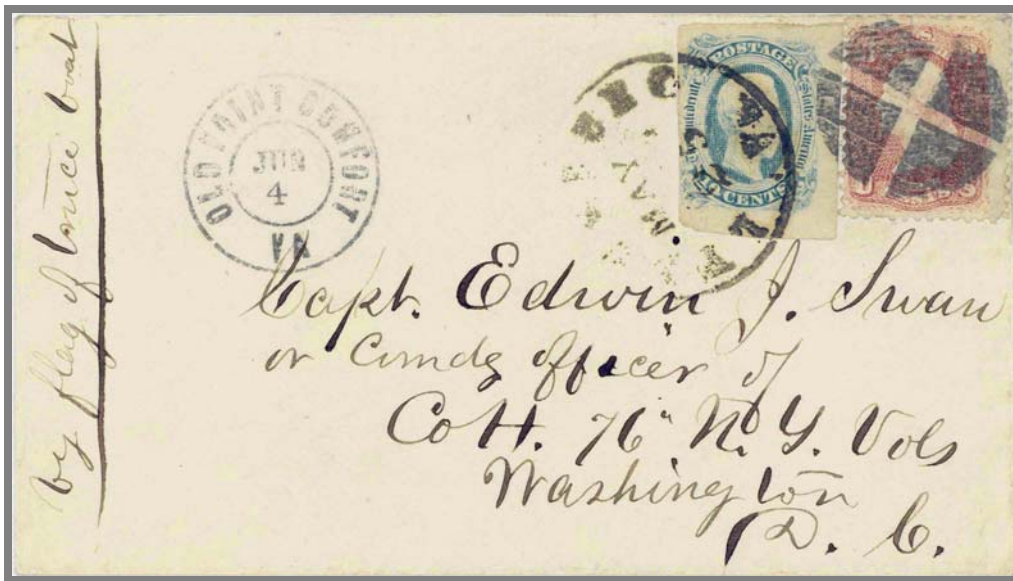 by flag of truce boat
OLD POINT COMFORT
JUN
4
VA
MAY
POSTAGE
Confederate States America
10 CENTS
Capt. Edwin J. Swan
or Comdg officer of
Co H. 76" N. Y. Vols
Washington
D. C.